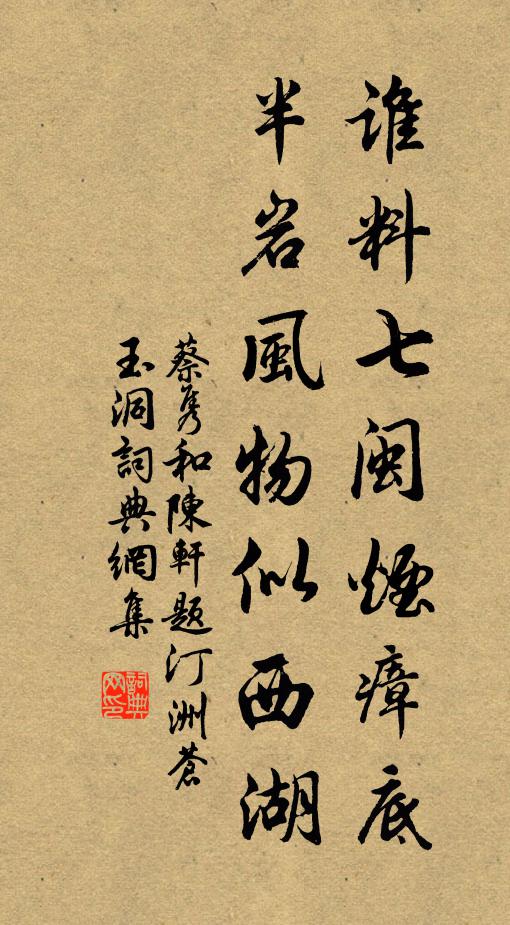 誰料七閩煙瘴底
半岩風物似西湖
蔡隽和陳軒題汀洲蒼
玉洞詞典網集
詞典網印